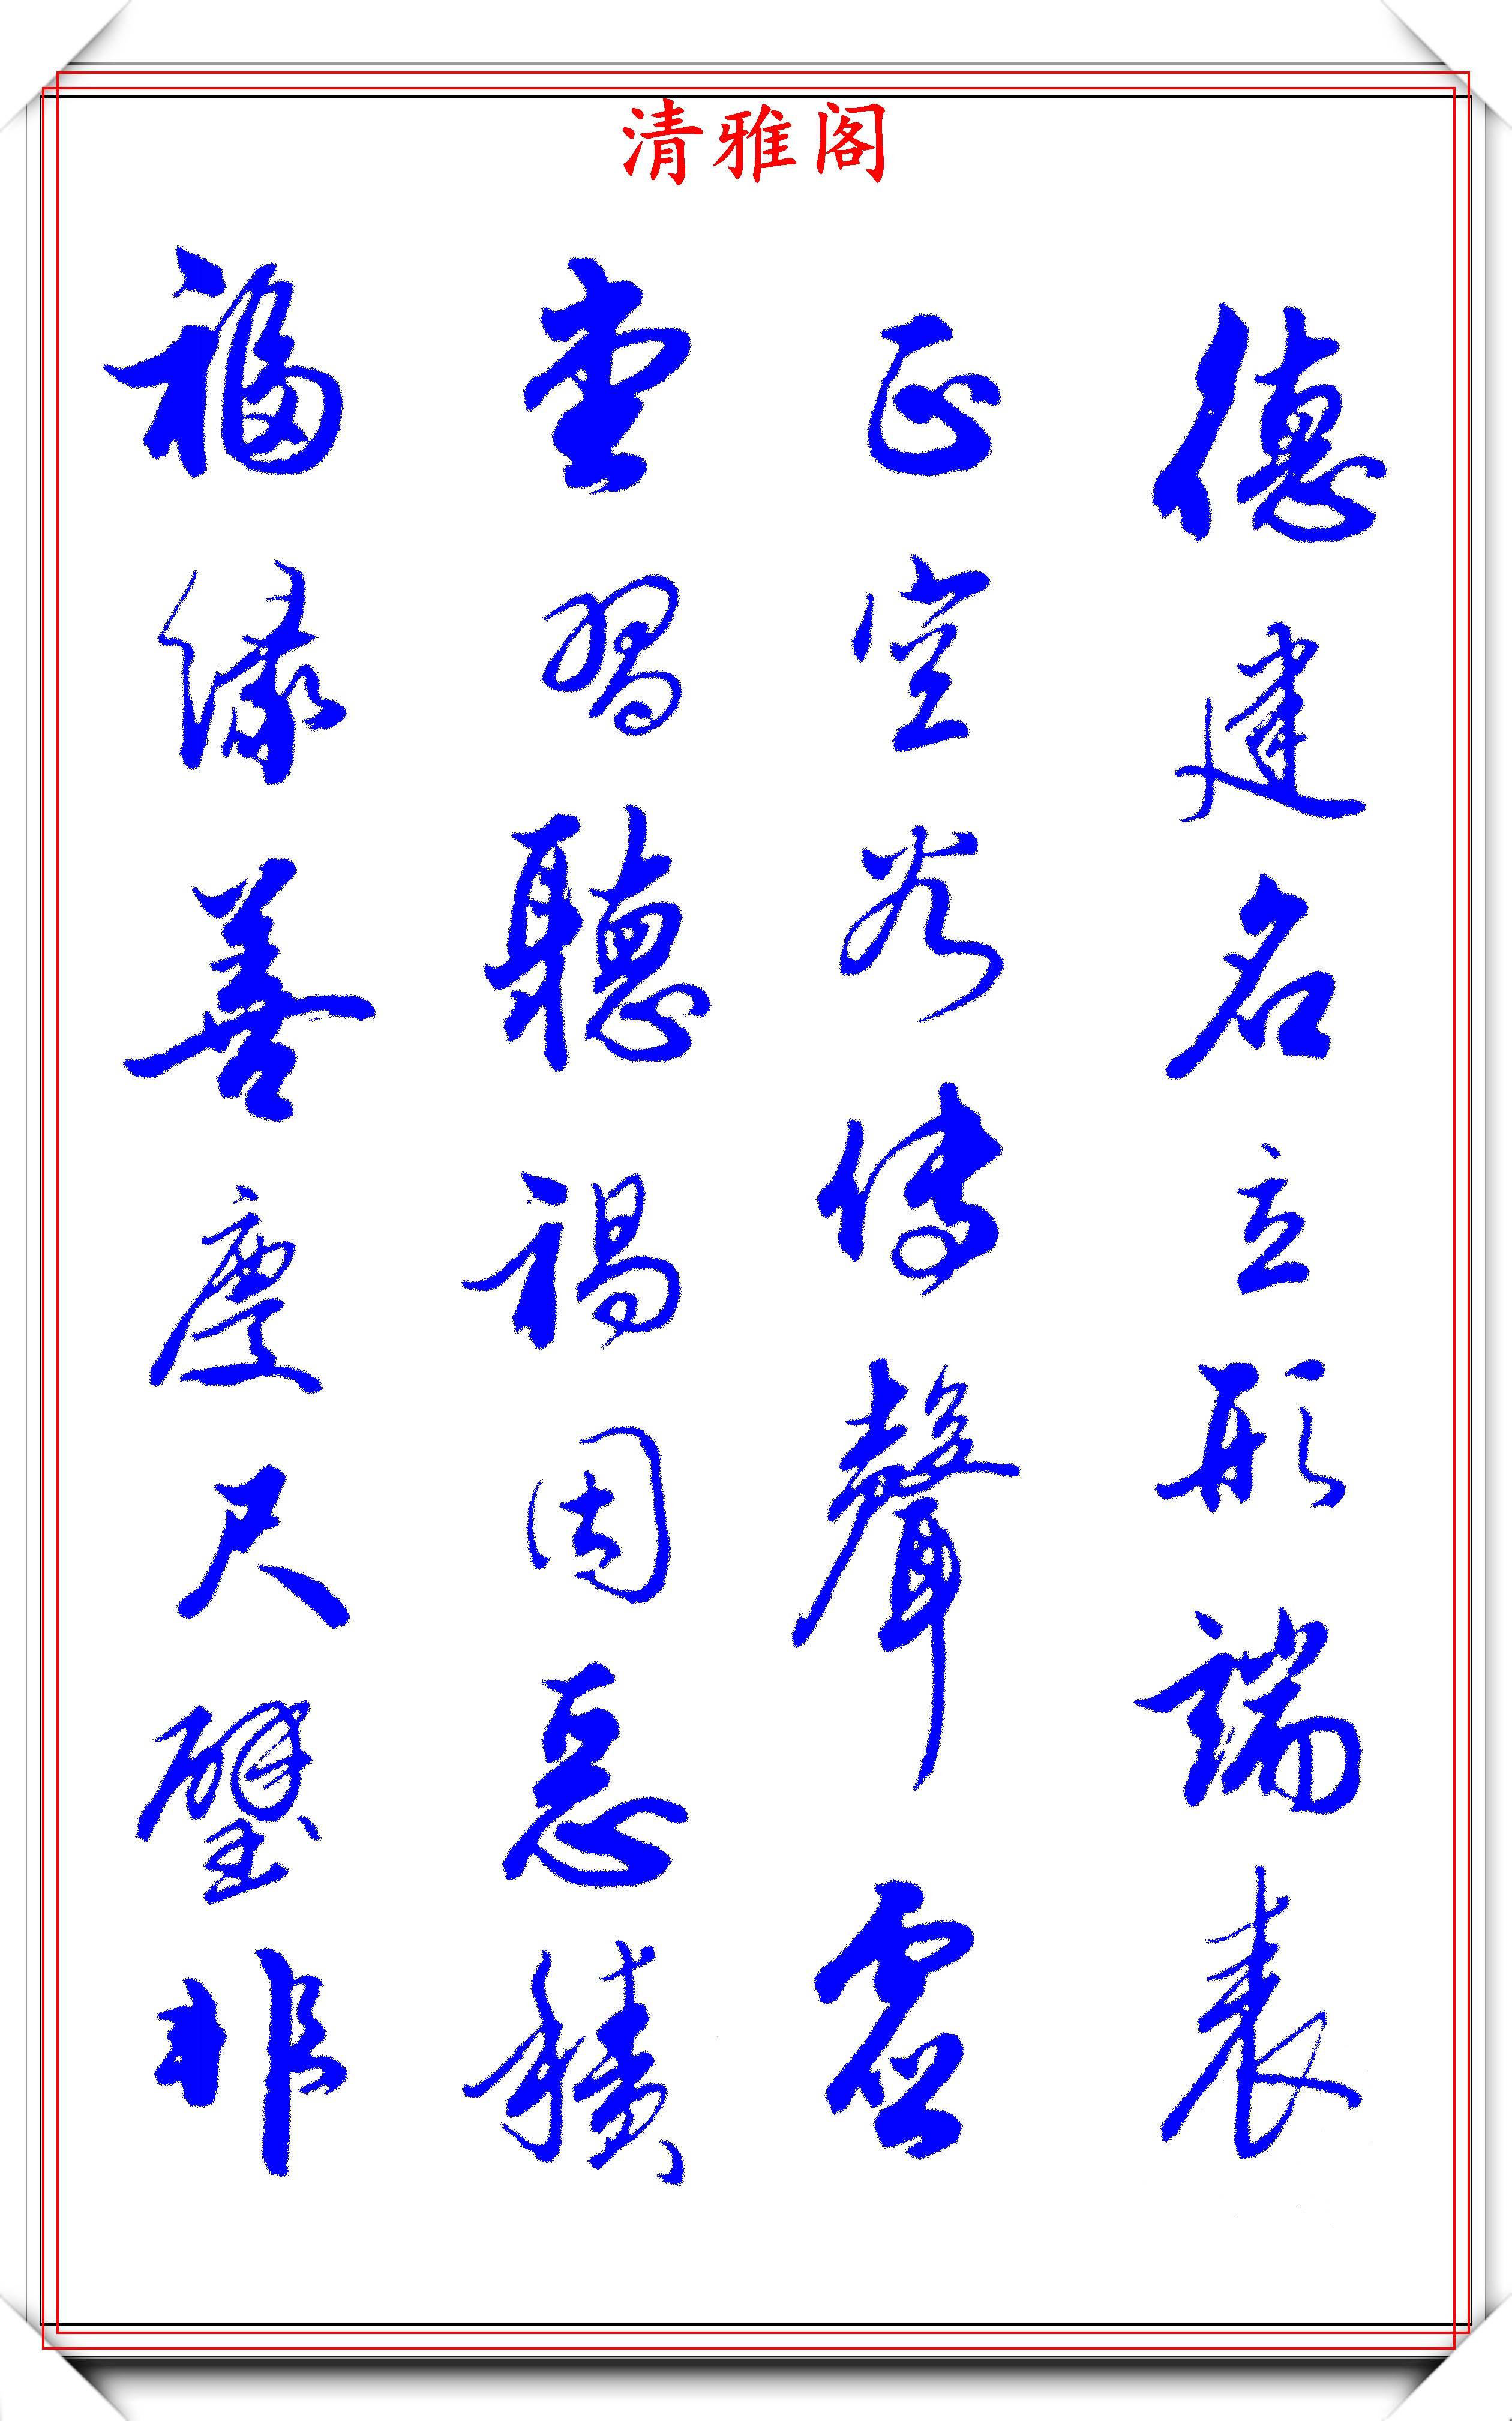 清雅阁
德建名立形端表
正空谷傳聲虛
堂習聽禍因惡積
福緣善慶尺璧非